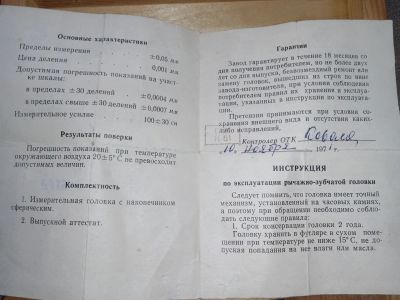 Основные характеристики
Пределы измерения ±0,05 мм
Цена деления 0,001 мм
Допустимая погрешность показаний на участ-
ке шкалы:
в пределах ±30 делений ±0,0004 мм
в пределах свыше ±30 делений ±0,0007 мм
Измерительное усилие 100±30 сн
Результаты поверки
Погрешность показаний при температуре
окружающего воздуха 20±5°С не превосходит
допустимых величин.
Комплектность
1. Измерительная головка с наконечником
сферическим.
2. Выпускной аттестат.
Гарантии
Завод гарантирует в течение 18 месяцев со
дня получения потребителем, но не более двух
лет со дня выпуска, безвозмездный ремонт или
замену головок, вышедших из строя по вине
завода-изготовителя, при условии соблюдения
потребителем правил их хранения и эксплуа-
тации, указанных в инструкции по эксплуата-
ции.
Претензии принимаются при условии со-
хранения внешнего вида и отсутствия каких-
либо исправлений.
Контролер ОТК
10. Ноября 1971 г.
ИНСТРУКЦИЯ
по эксплуатации рычажно-зубчатой головки
Следует помнить, что головка имеет точный
механизм, установленный на часовых камнях,
а поэтому при обращении необходимо соблю-
дать следующие правила:
1. Срок консервации головки 2 года.
Головку хранить в футляре в сухом поме-
щении при температуре не ниже 15°С, не до-
пуская попадания на нее влаги или масла.